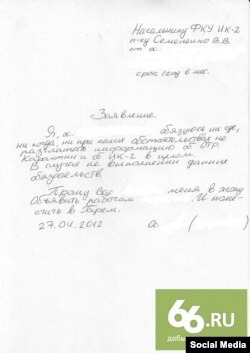 Начальнику ФКУ ИК-2
п-ку Семененко В.В.
от о.
срок 1 год 6 мес.
Заявление.
Я, о. обязуюсь ни где,
ни когда, ни при каких обстоятельствах не
разглашать информацию об ОТР.
Карантин и о ИК-2 в целом.
В случае не выполнении данных
обязательств.
Прошу Вас меня в жопу
Объявить рабочим . И поме-
стить в Гарем.
27.04.2012 Ос ( )
66.RU
Social Media